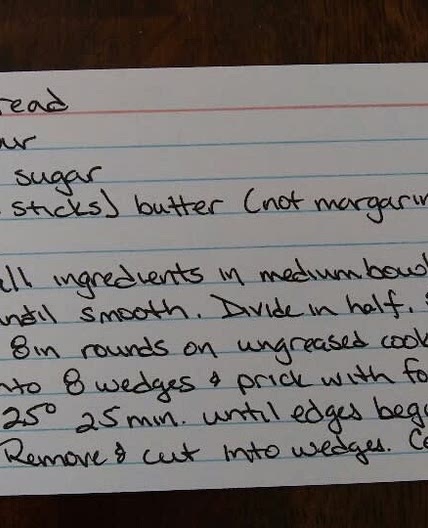 read
ur
sugar
sticks) butter (not margarin
ll ingredients in medium bowl
until smooth. Divide in half.
8in rounds on ungreased cook
nto 8 wedges & prick with fo
25° 25 min. until edges beg
Remove & cut into wedges. Co